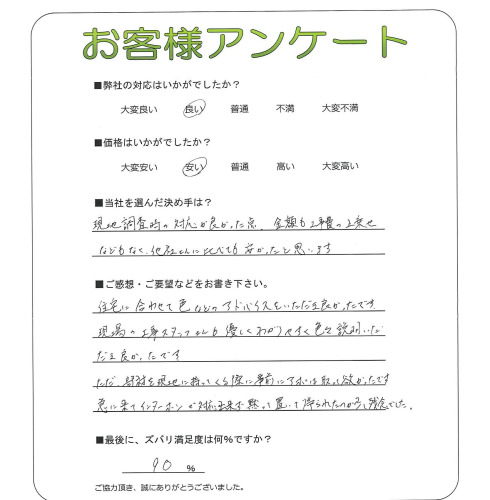 お客様アンケート
■弊社の対応はいかがでしたか？
大変良い 良い 普通 不満 大変不満
■価格はいかがでしたか？
大変安い 安い 普通 高い 大変高い
■当社を選んだ決め手は？
現地調査時の対応が良かった点、金額も工事費の上乗せ
などもなく、他社さんに比べても安かったと思います
■ご感想・ご要望などをお書き下さい。
住宅に合わせて色などのアドバイスをいただき良かったです。
現場の工事スタッフさんも優しくわかりやすく色々説明いた
だき良かったです
ただ、部材を現地に持ってくる際に事前にアポは取って欲かったです
急に来てインターホンが対応出来ず黙って置いて帰られたのが少し残念でした。
■最後に、ズバリ満足度は何%ですか？
90 %
ご協力頂き、誠にありがとうございました。